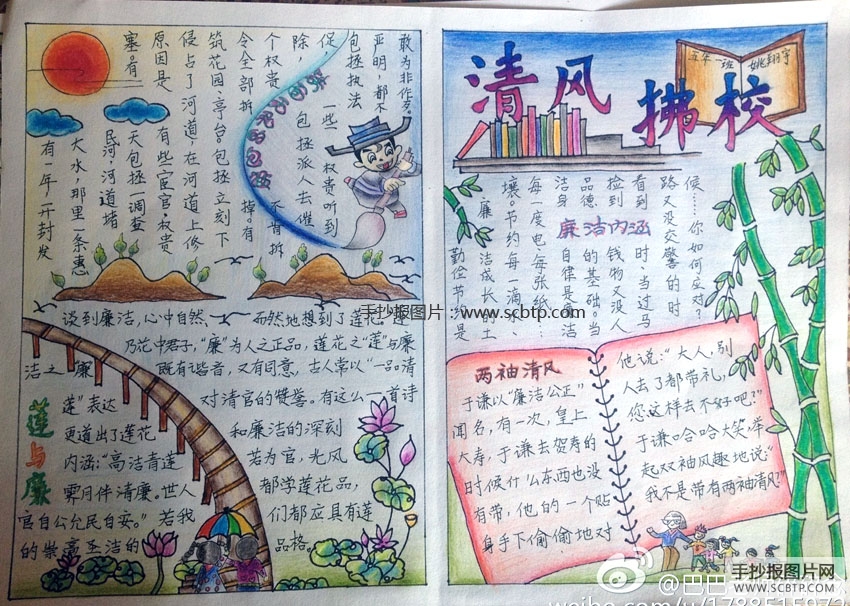 清风拂校
五年一班 姚翔宇
有一年,开封发
大水,那里一条惠
民河河道堵
塞。有
天包拯一调查
原因是有些宦官、权贵
侵占了河道,在河道上修
筑花园、亭台。包拯立刻下
令全部拆掉。有
个权贵不肯拆
除,包拯派人去催
促,一些权贵听到
包拯执法
严明,都不
敢为非作歹。
廉洁内涵
勤俭节是
廉洁成长的土
壤。节约每一滴水、
每一度电、每张纸……
洁身自律是廉洁
品德的基础。当
捡到钱物又没人
看到时、当过马
路又没交警的时
候……你如何应对?
手抄报图片:www.scbtp.com
莲与廉
谈到廉洁,心中自然而然地想到了莲花。莲
乃花中君子,“廉”为人之正品,莲花之“莲”与廉
洁之廉既有谐音,又有同意,古人常以“一品清
莲”表达对清官的赞誉。有这么一首诗
更道出了莲花和廉洁的深刻
内涵:“高洁青莲若为官,光风
霁月伴清廉。世人都学莲花品,
官自公允民自安。”若我们都应具有莲
的崇高圣洁的品格。
两袖清风
于谦以“廉洁公正”
闻名,有一次,皇上
大寿,于谦去贺寿的
时候什么东西也没
有带,他的一个贴
身手下偷偷地对
他说:“大人,别
人去了都带礼,
您这样去不好吧?”
于谦哈哈大笑,举
起双袖风趣地说:“
我不是带有两袖清风?”
@巴巴
手抄报图片网
WWW.SCBTP.COM
weibo.com/u/1788515973